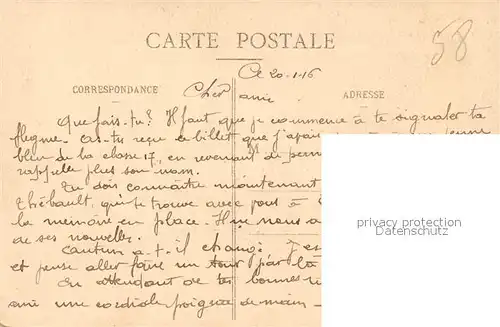 58
CARTE POSTALE
Ce 20-1-16
CORRESPONDANCE
ADRESSE
Cher ami
Que fais-tu? Il faut que je commence à te signaler ta
flegme. As-tu reçu ce billet que j'avais
bleu de la classe 17, en revenant de
rappelle plus son nom.
Tu dois connaître maintenant
Thébault, qui se trouve avec vous à
la mémoire en place. Hier nous a
de ses nouvelles.
a-t-il changé J'es
et pense aller faire un tour par là
En attendant de tes bonnes
ami une cordiale poignée de main -
privacy protection
Datenschutz